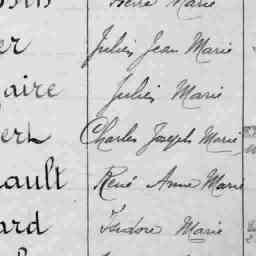 Pierre Marie
er Julien Jean Marie
aire Julien Marie
ert Charles Joseph Marie
ault René Anne Marie
ard Isidore Marie